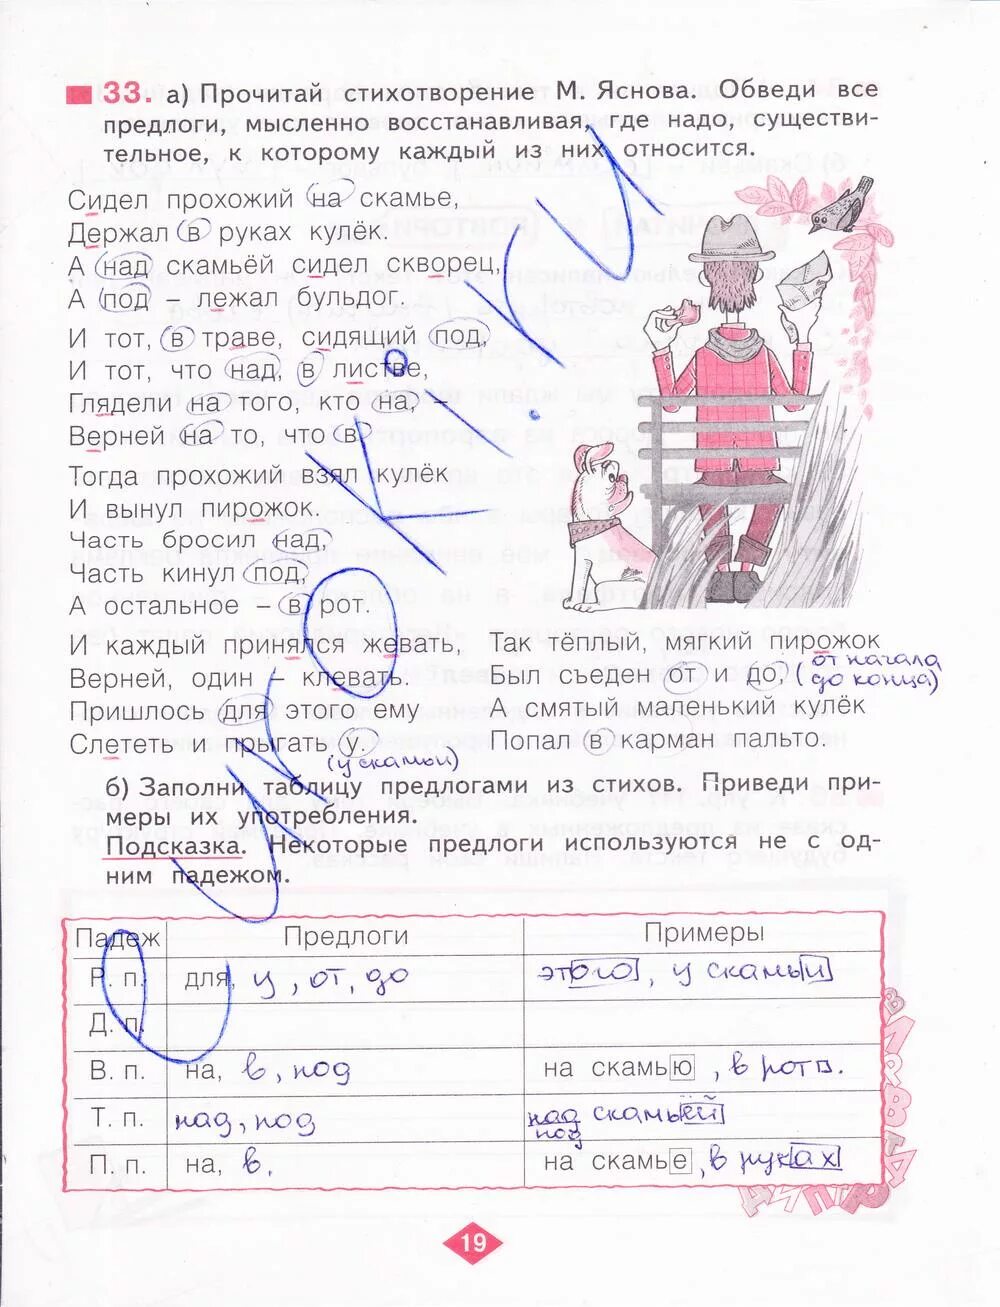 33. а) Прочитай стихотворение М. Яснова. Обведи все
предлоги, мысленно восстанавливая, где надо, существи-
тельное, к которому каждый из них относится.
Сидел прохожий на скамье,
Держал в руках кулёк.
А над скамьёй сидел скворец,
А под – лежал бульдог.
И тот, в траве, сидящий под,
И тот, что над, в листве,
Глядели на того, кто на, –
Верней на то, что в.
Тогда прохожий взял кулёк
И вынул пирожок.
Часть бросил над,
Часть кинул под,
А остальное – в рот.
И каждый принялся жевать,
Верней, один – клевать.
Пришлось для этого ему
Слететь и прыгать у.
(у скамьи)
Так тёплый, мягкий пирожок
Был съеден от и до, (от начала
до конца)
А смятый маленький кулёк
Попал в карман пальто.
б) Заполни таблицу предлогами из стихов. Приведи при-
меры их употребления.
Подсказка. Некоторые предлоги используются не с од-
ним падежом.
Падеж Предлоги Примеры
Р. п. для, у, от, до этого, у скамьи
Д. п.
В. п. на, в, под на скамью, в рот.
Т. п. над, под над скамьёй
под
П. п. на, в. на скамье, в руках
19